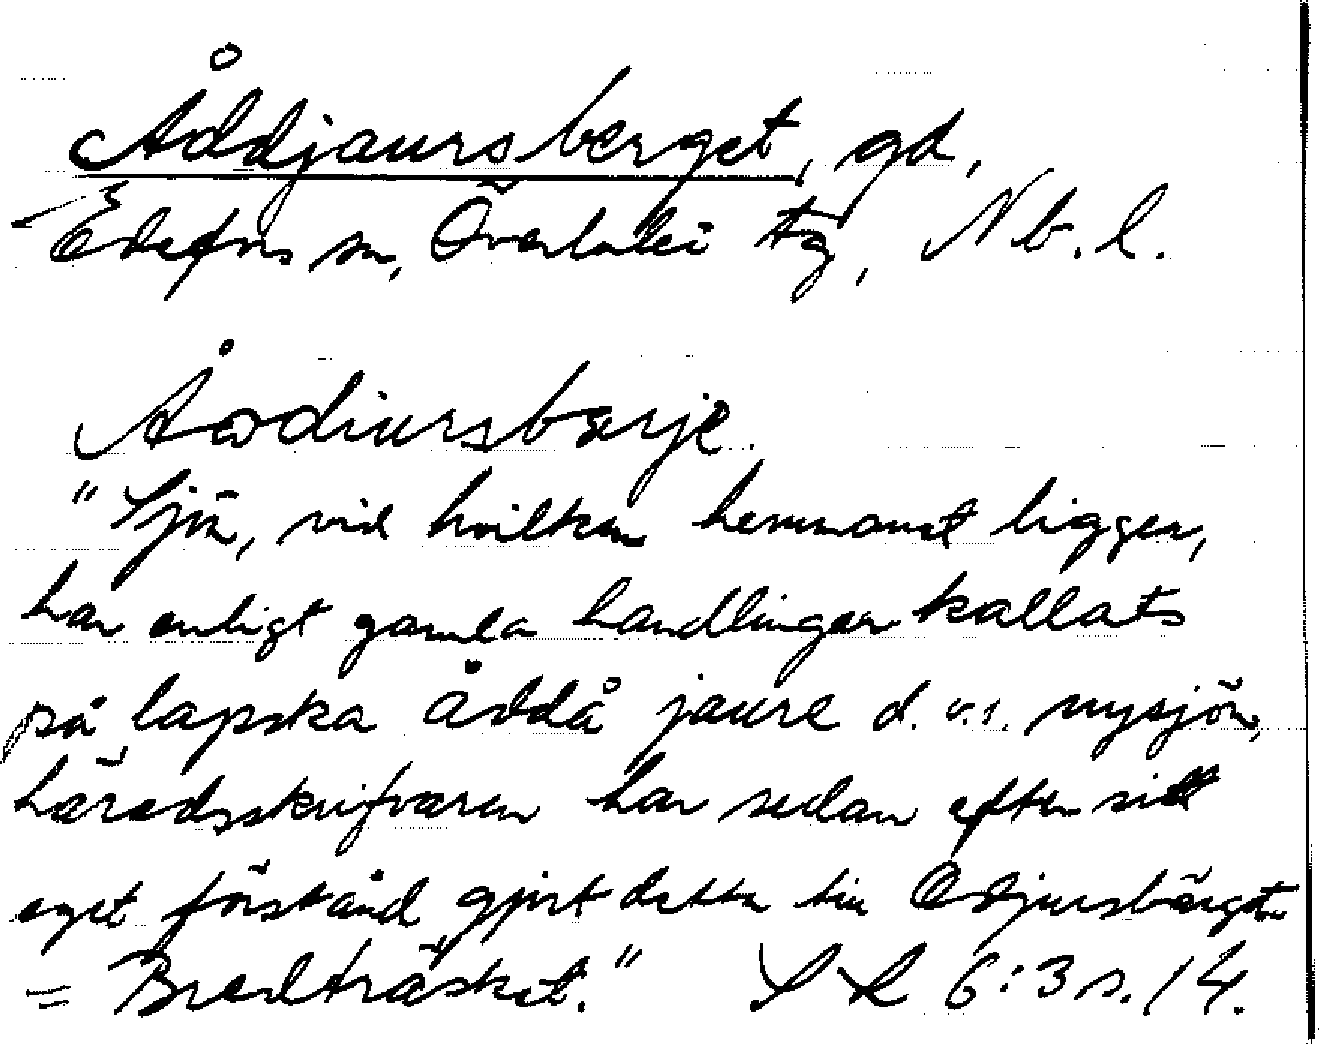 Åddjaursberget, gd,
Edefors sn, Överlulei tg, Nb. l.
Åωdiursbærje
"Sjön, vid hvilken hemmanet ligger,
har enligt gamla handlingar kallats
på lapska åddå jaure d. v. s. nysjön,
häradsskrifvaren har sedan efter sitt
eget förstånd gjort detta till Odjursbärget
= Bredträsket." 6:3 s. 14.